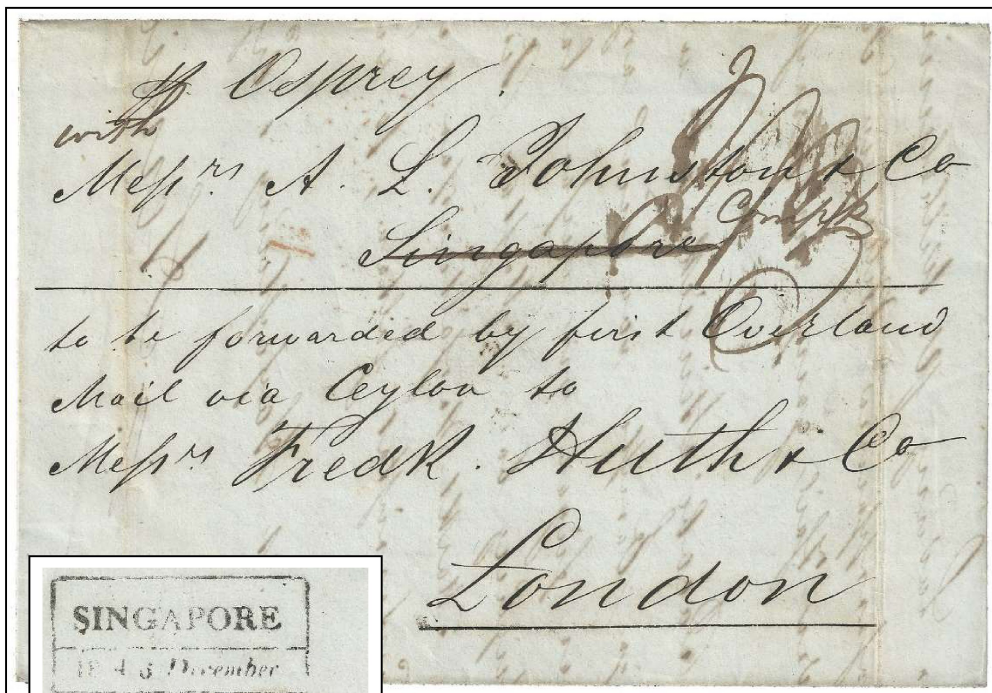 p. Osprey
with
Messrs A. L. Johnston & Co
Singapore
to be forwarded by first Overland
Mail via Ceylon to
Messrs Fredk. Huth & Co
London
SINGAPORE
184 December